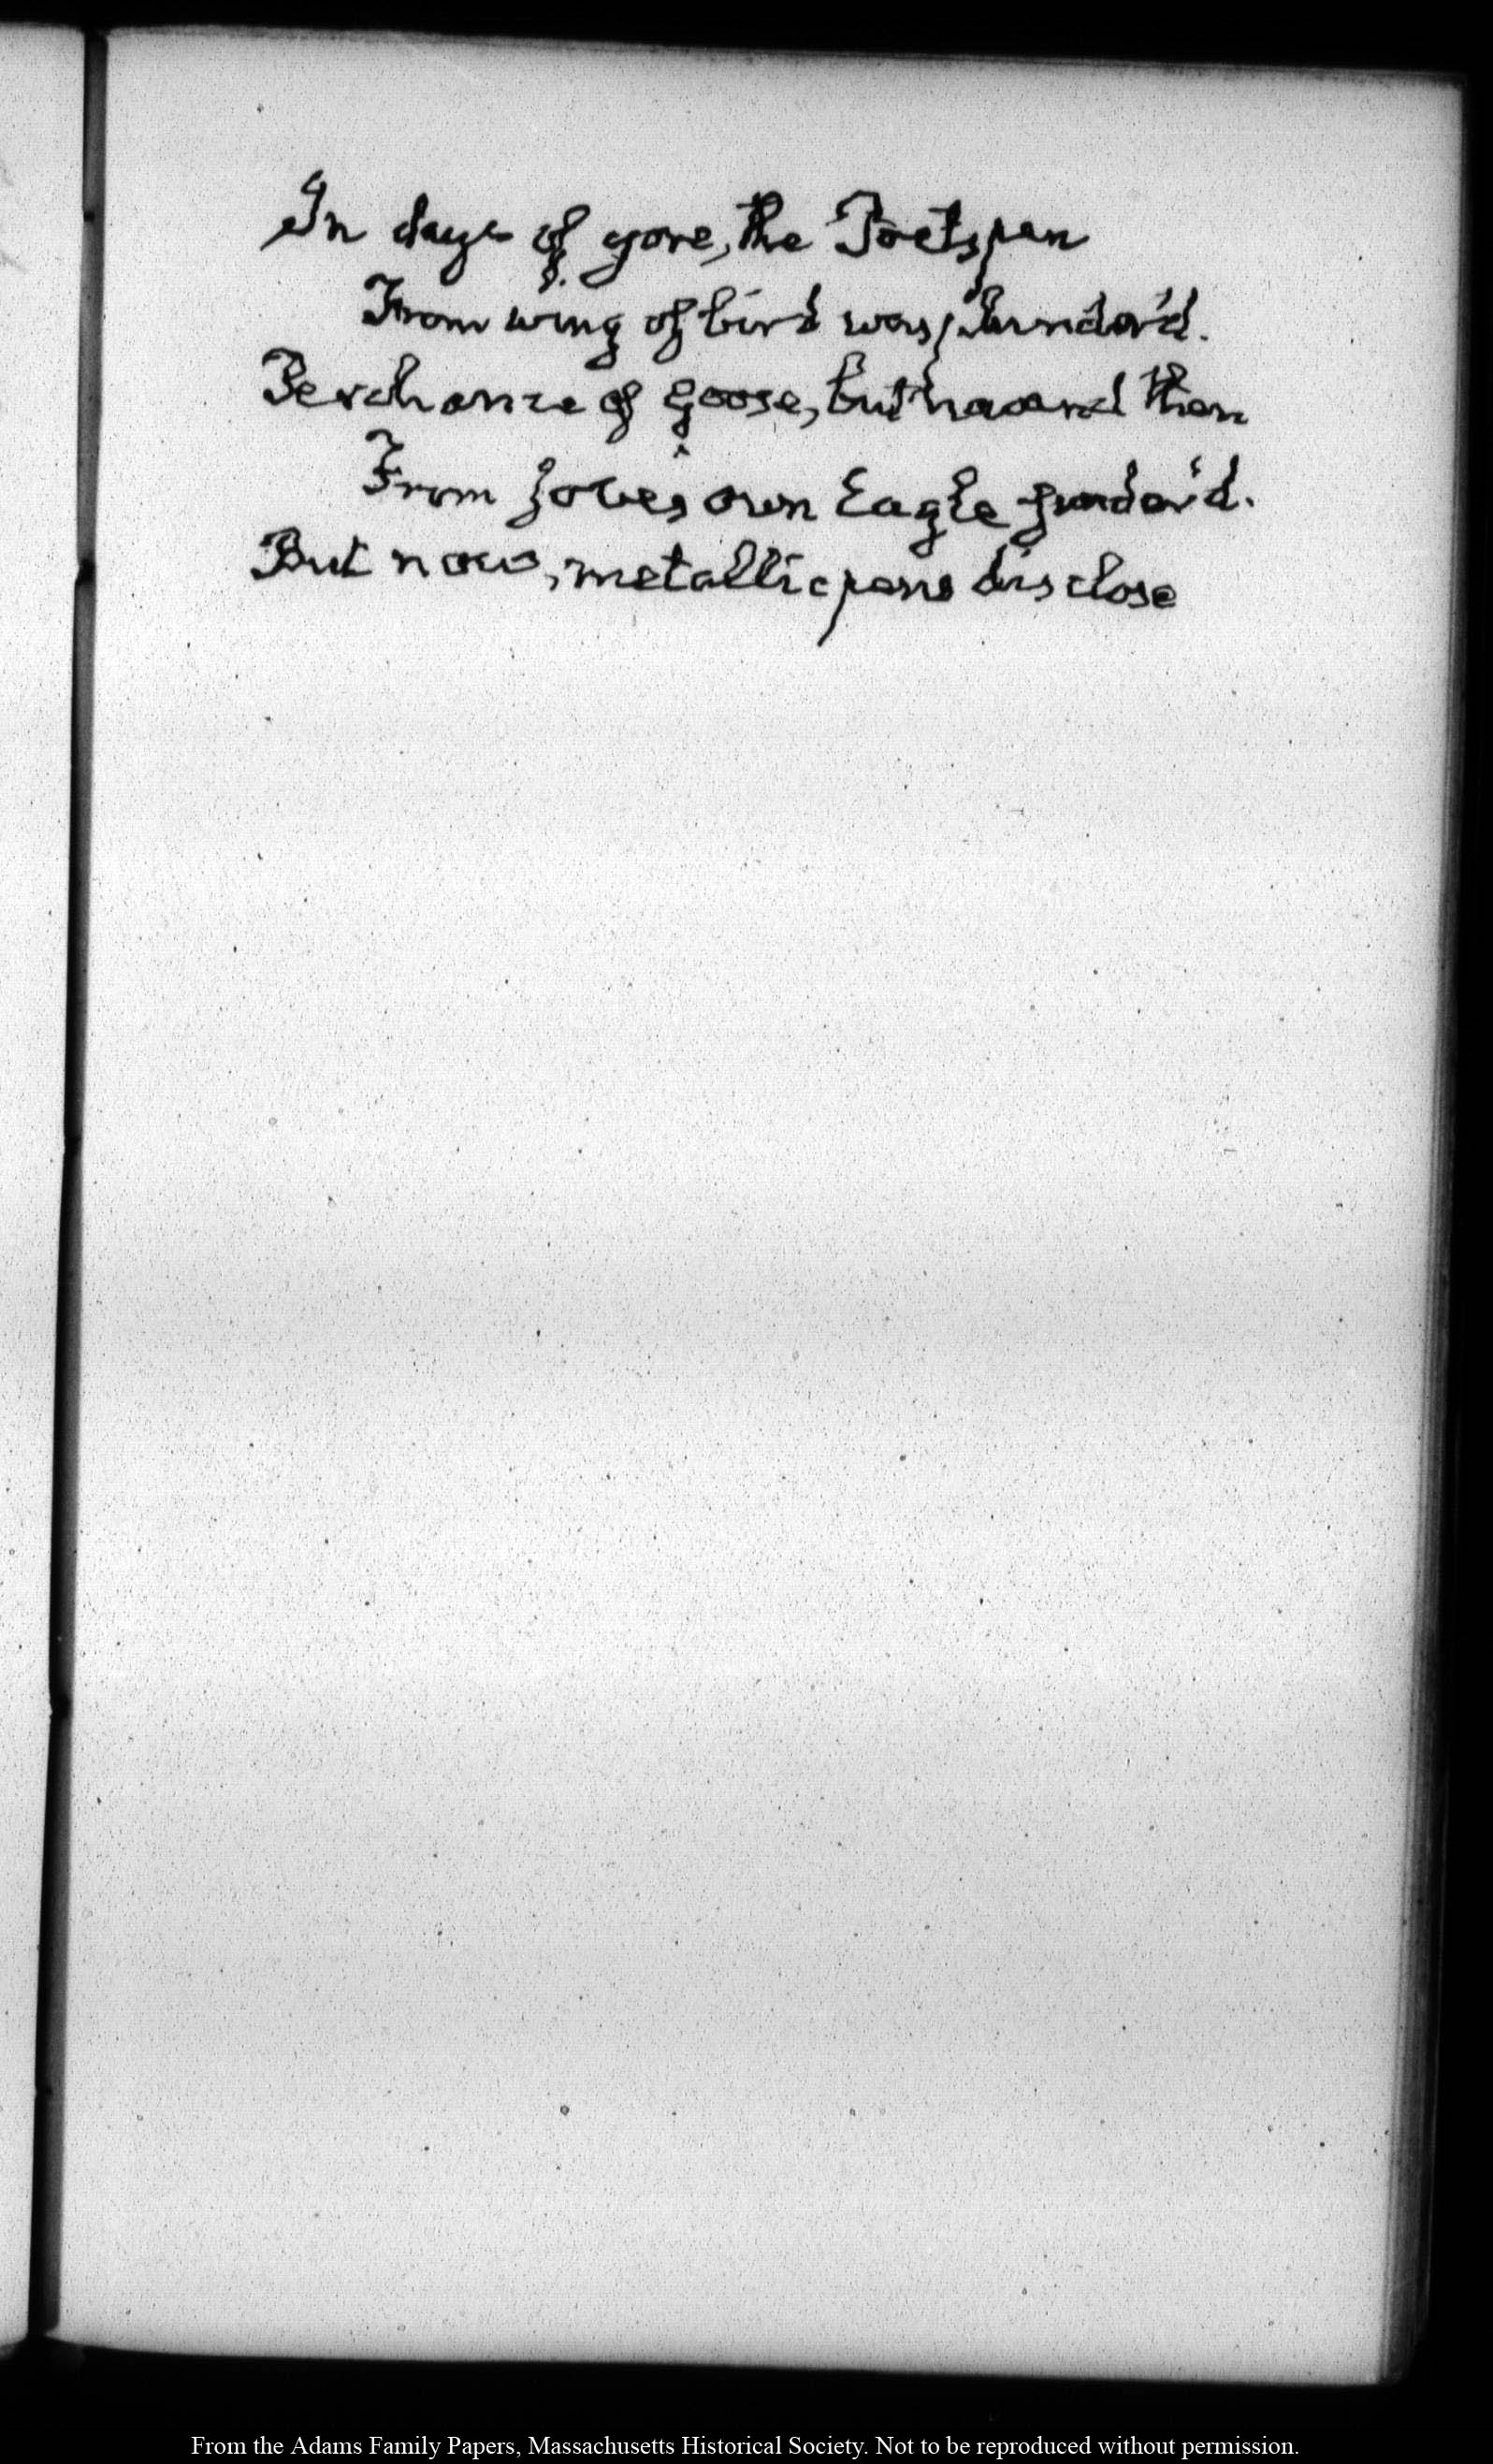 In days of yore, the Poets pen
From wing of bird was plunder'd.
Perchance of Goose, but now and then
From Jove's own Eagle sunder'd.
But now, metallic pens disclose
From the Adams Family Papers, Massachusetts Historical Society. Not to be reproduced without permission.